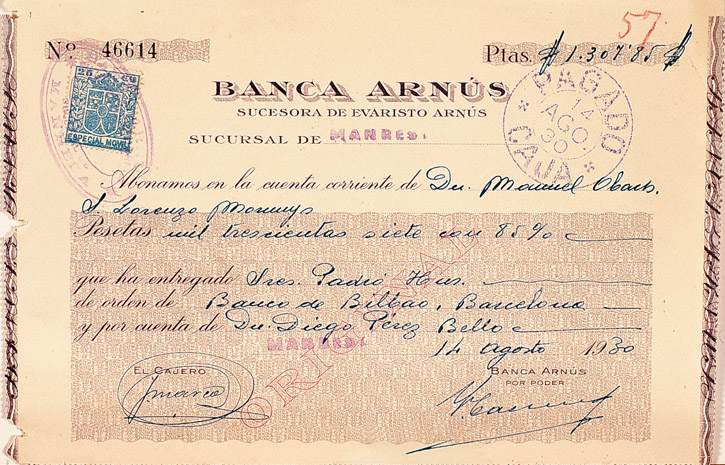 57
Nº 46614 Ptas. # 1.307'85 #
25 Cs
ESPECIAL MOVIL
BANCA ARNÚS
SUCESORA DE EVARISTO ARNÚS
SUCURSAL DE MANRESA
PAGADO
14 AGO 30
CAJA
Abonamos en la cuenta corriente de Dn. Manuel
S. Lorenzo
Pesetas mil trescientas siete con 85%
que ha entregado Sres. Padró Hns.
de orden de Banco de Bilbao, Barcelona
y por cuenta de Dn. Diego Pérez Bello
MANRESA 14 Agosto 1930
ORIGINAL
EL CAJERO BANCA ARNÚS
POR PODER